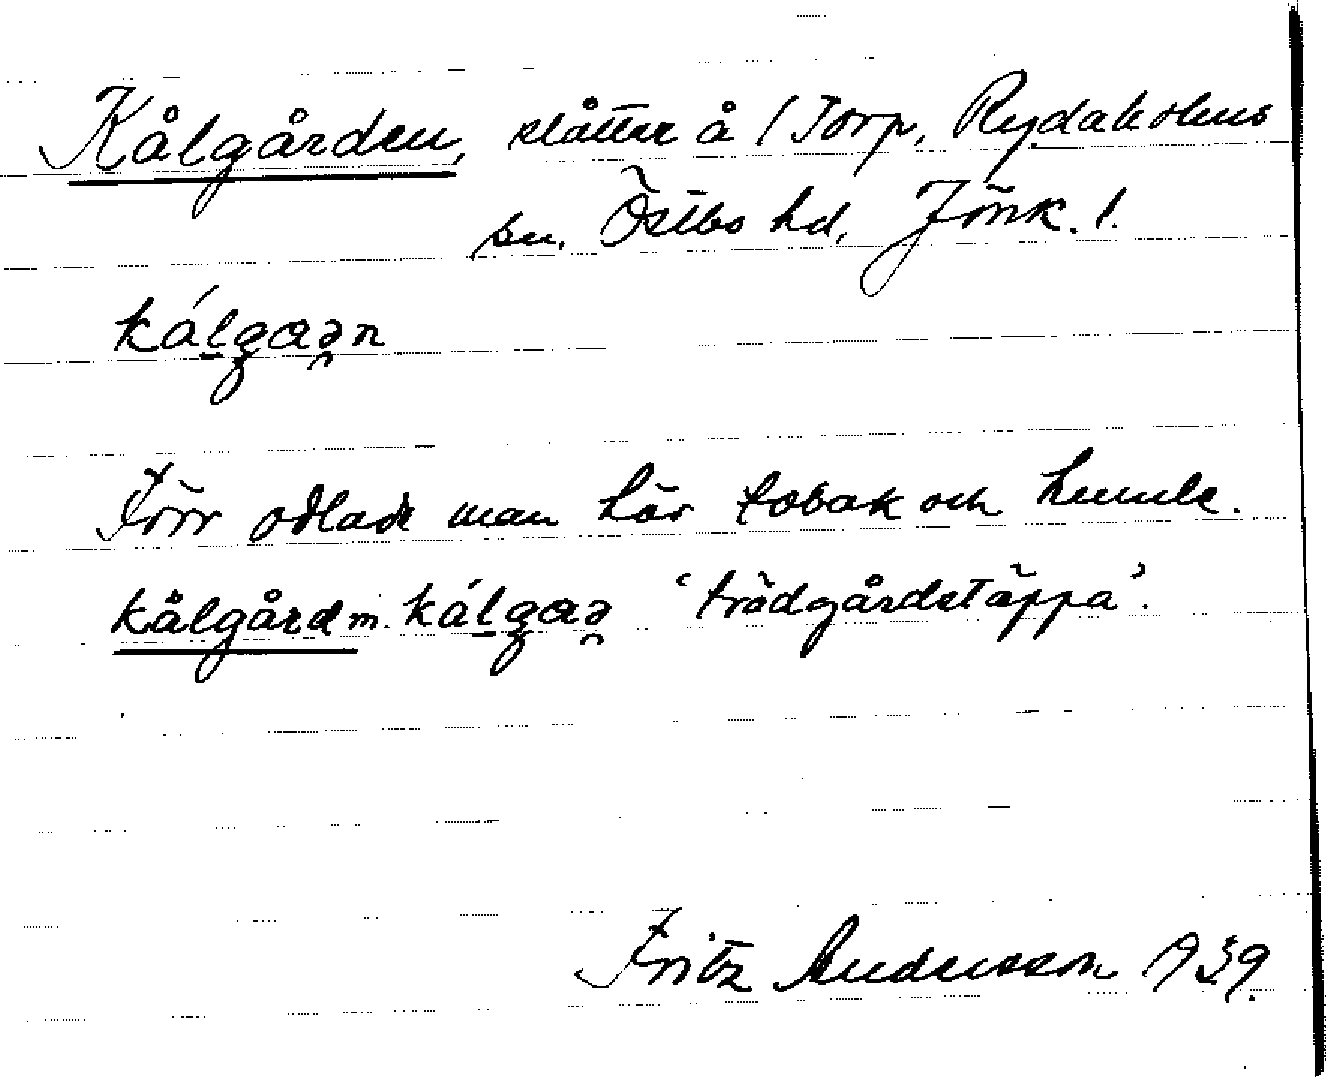 Kålgården, slåtter å /Torp, Rydaholms
sn. Östbo hd, Jönk. l.
kálgaən
Förr odlade man här tobak och humle.
kålgård m. kálgaə 'trädgårdstäppa'.
Fritz Andersson 1939.